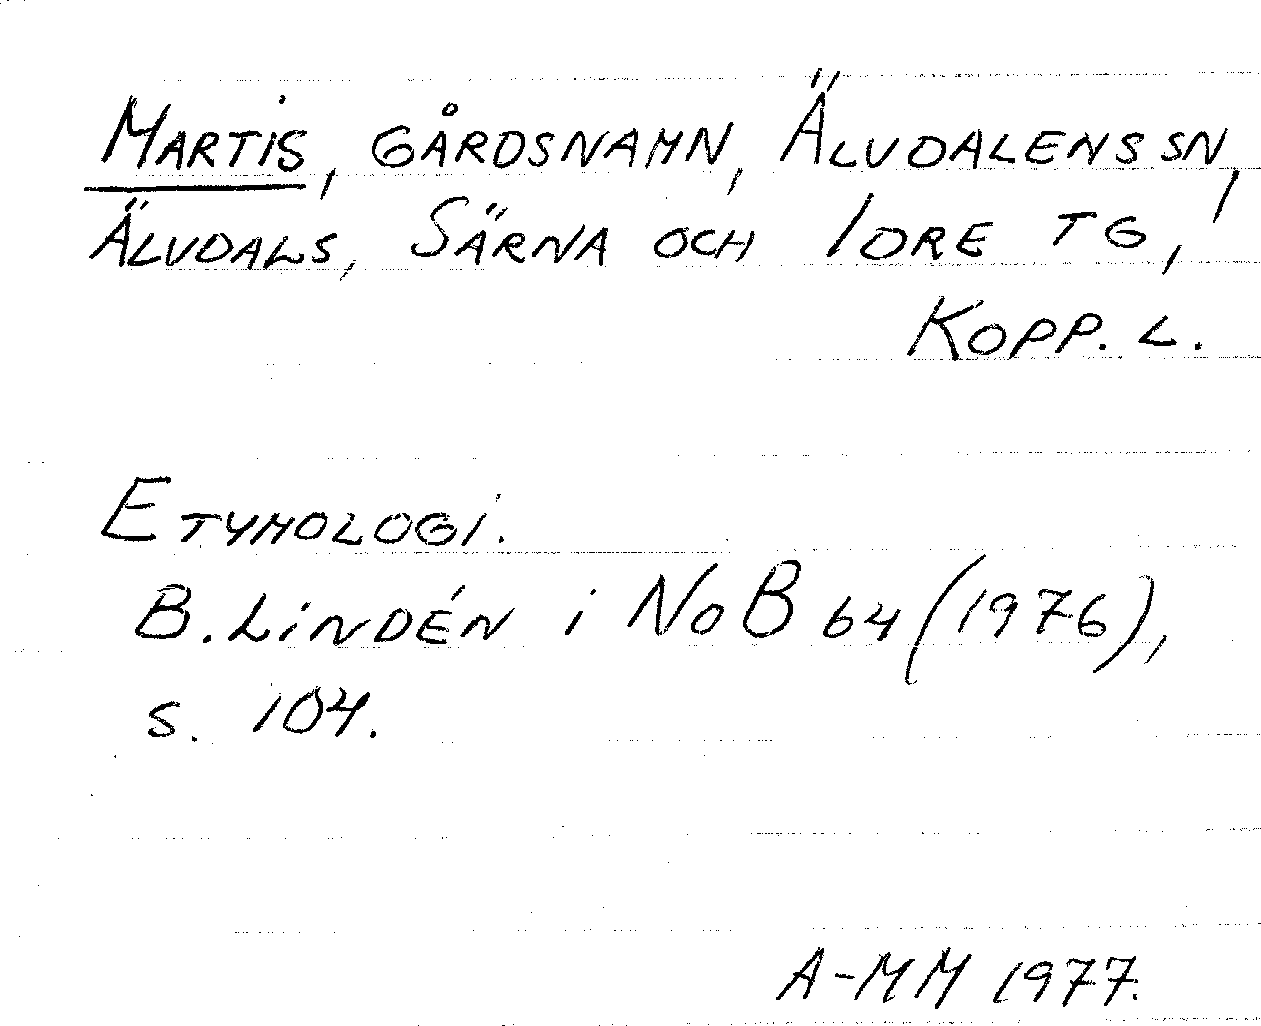 Martis, gårdsnamn, Älvdalens sn,
Älvdals, Särna och Idre tg,
Kopp. l.
Etymologi.
B. Lindén i NoB 64 (1976),
s. 104.
A-MM 1977.